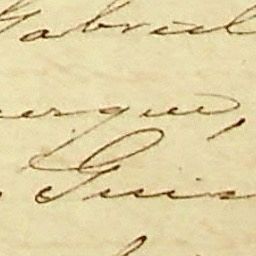 Gabriel
ergue,
Guis